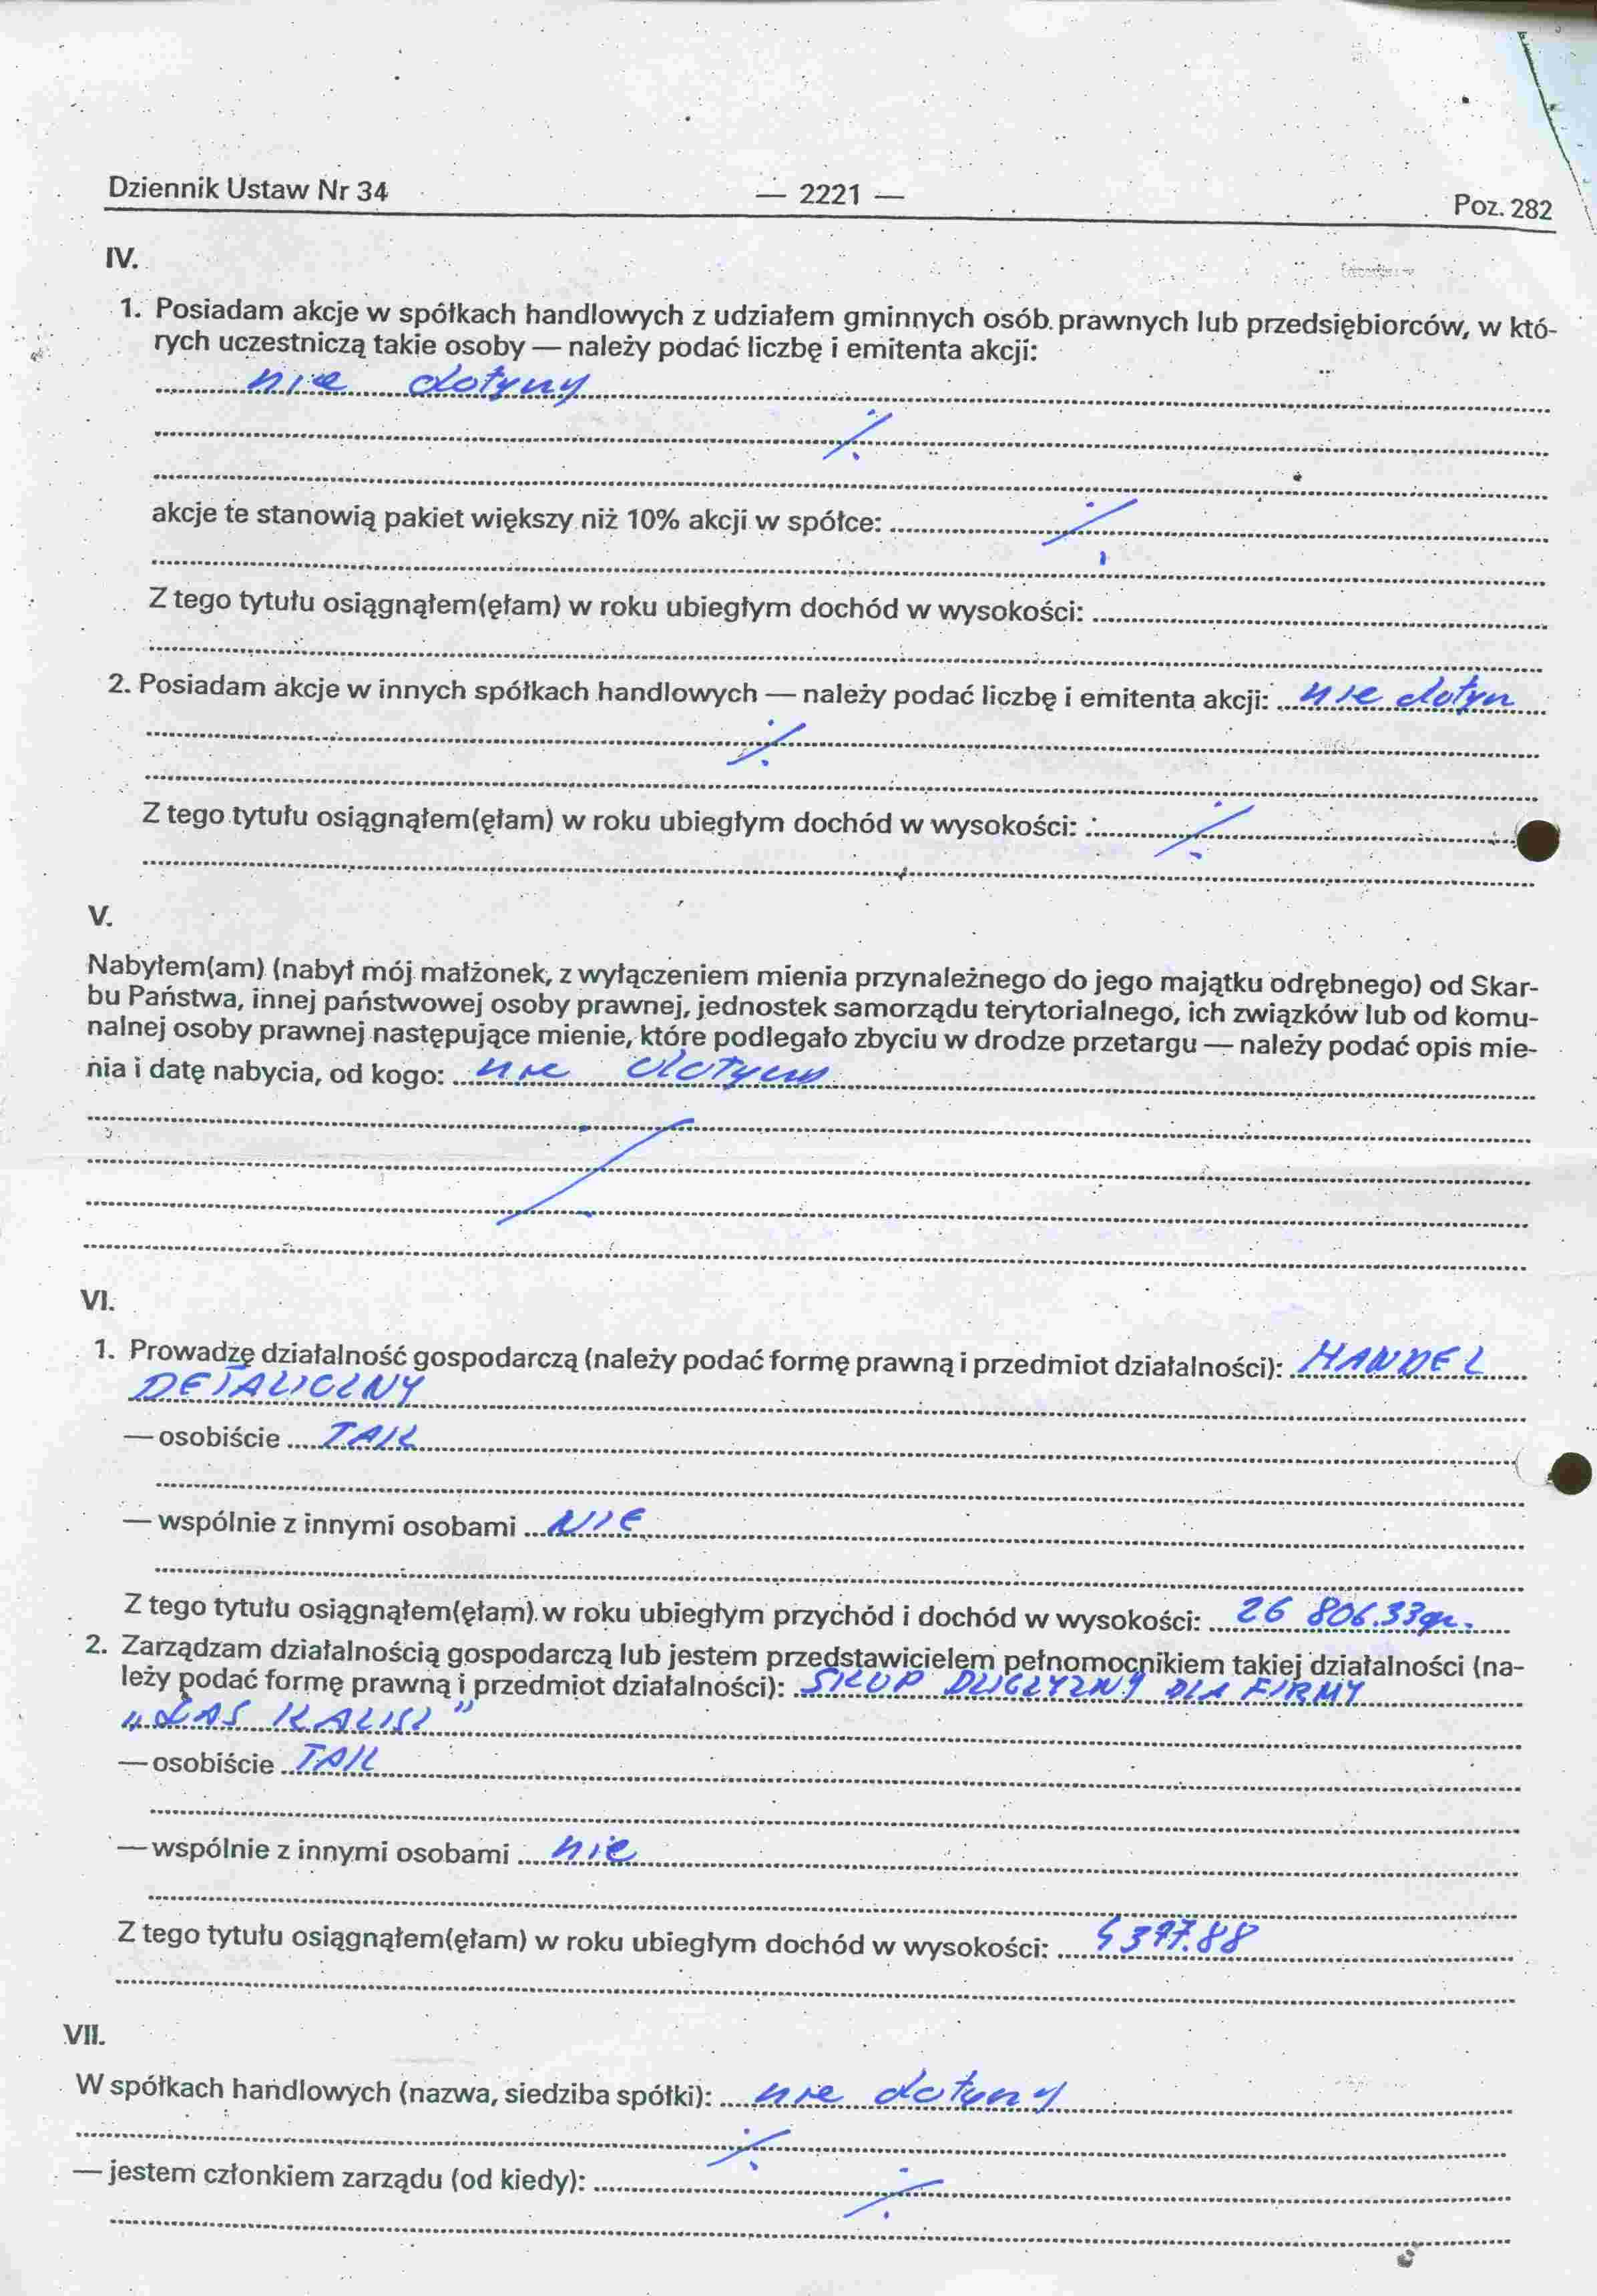 Dziennik Ustaw Nr 34 — 2221 — Poz. 282
IV.
1. Posiadam akcje w spółkach handlowych z udziałem gminnych osób prawnych lub przedsiębiorców, w któ-
rych uczestniczą takie osoby — należy podać liczbę i emitenta akcji:
nie dotyczy
akcje te stanowią pakiet większy niż 10% akcji w spółce:
Z tego tytułu osiągnąłem(ęłam) w roku ubiegłym dochód w wysokości:
2. Posiadam akcje w innych spółkach handlowych — należy podać liczbę i emitenta akcji: nie
Z tego tytułu osiągnąłem(ęłam) w roku ubiegłym dochód w wysokości:
V.
Nabyłem(am) (nabył mój małżonek, z wyłączeniem mienia przynależnego do jego majątku odrębnego) od Skar-
bu Państwa, innej państwowej osoby prawnej, jednostek samorządu terytorialnego, ich związków lub od komu-
nalnej osoby prawnej następujące mienie, które podlegało zbyciu w drodze przetargu — należy podać opis mie-
nia i datę nabycia, od kogo: nie dotyczy
VI.
1. Prowadzę działalność gospodarczą (należy podać formę prawną i przedmiot działalności): HANDEL
DETALICZNY
— osobiście TAK
— wspólnie z innymi osobami NIE
Z tego tytułu osiągnąłem(ęłam) w roku ubiegłym przychód i dochód w wysokości: 26 806.33gr.
2. Zarządzam działalnością gospodarczą lub jestem przedstawicielem pełnomocnikiem takiej działalności (na-
leży podać formę prawną i przedmiot działalności): SKUP DZICZYZNY DLA FIRMY
„LAS KALISZ"
— osobiście TAK
— wspólnie z innymi osobami nie
Z tego tytułu osiągnąłem(ęłam) w roku ubiegłym dochód w wysokości:
VII.
W spółkach handlowych (nazwa, siedziba spółki): nie dotyczy
— jestem członkiem zarządu (od kiedy):